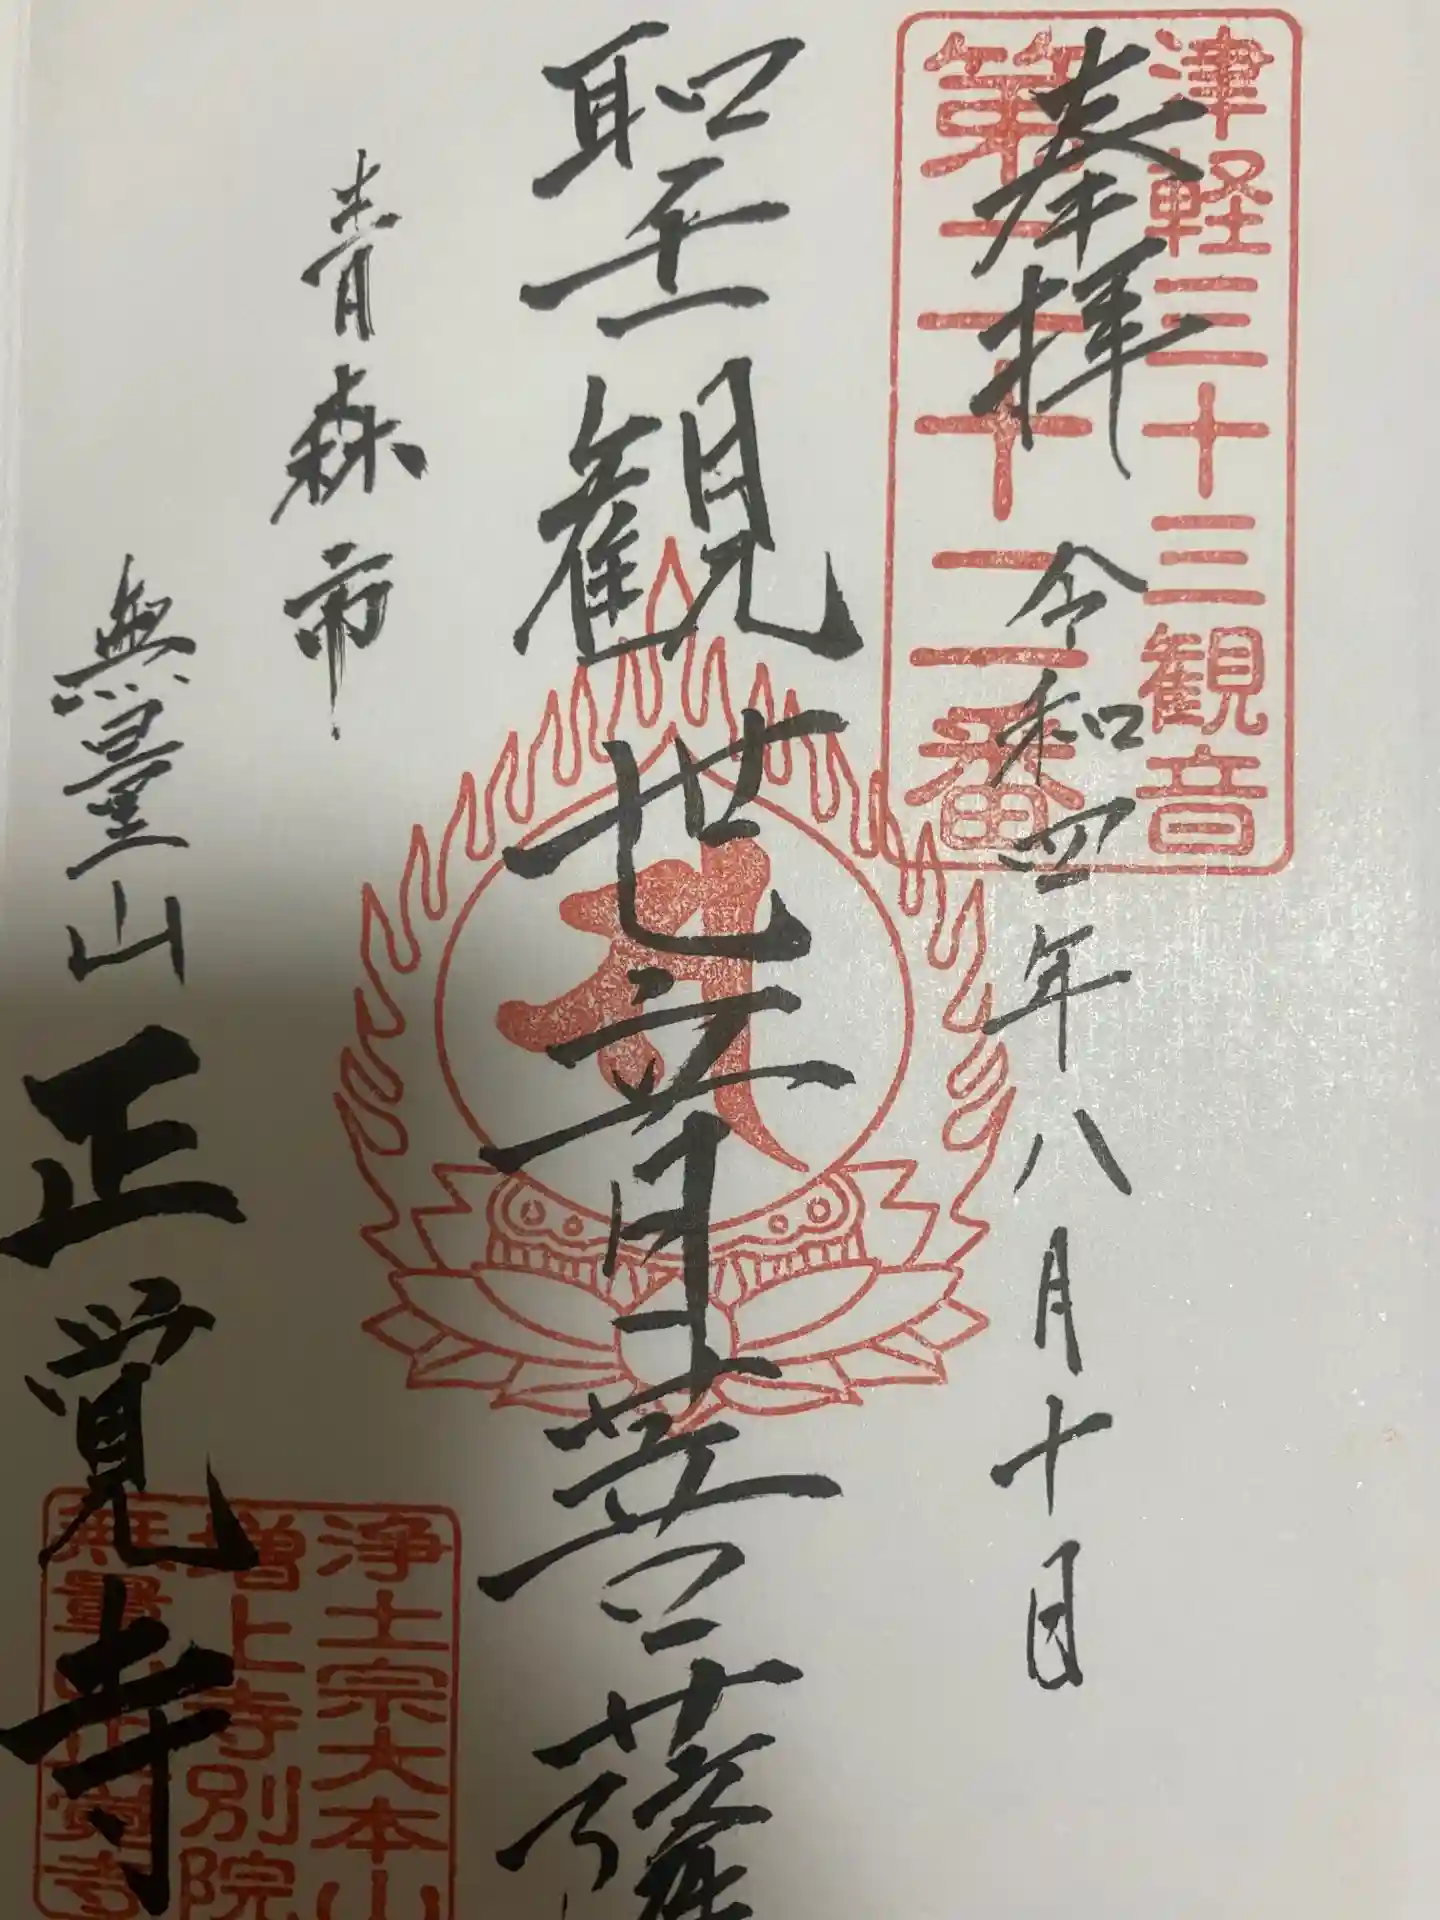 津軽三十三観音
第二十二番
奉拝
令和四年八月十日
聖観世音菩薩
青森市
無量山
正覚寺
浄土宗大本山
増上寺別院
無量山正覚寺